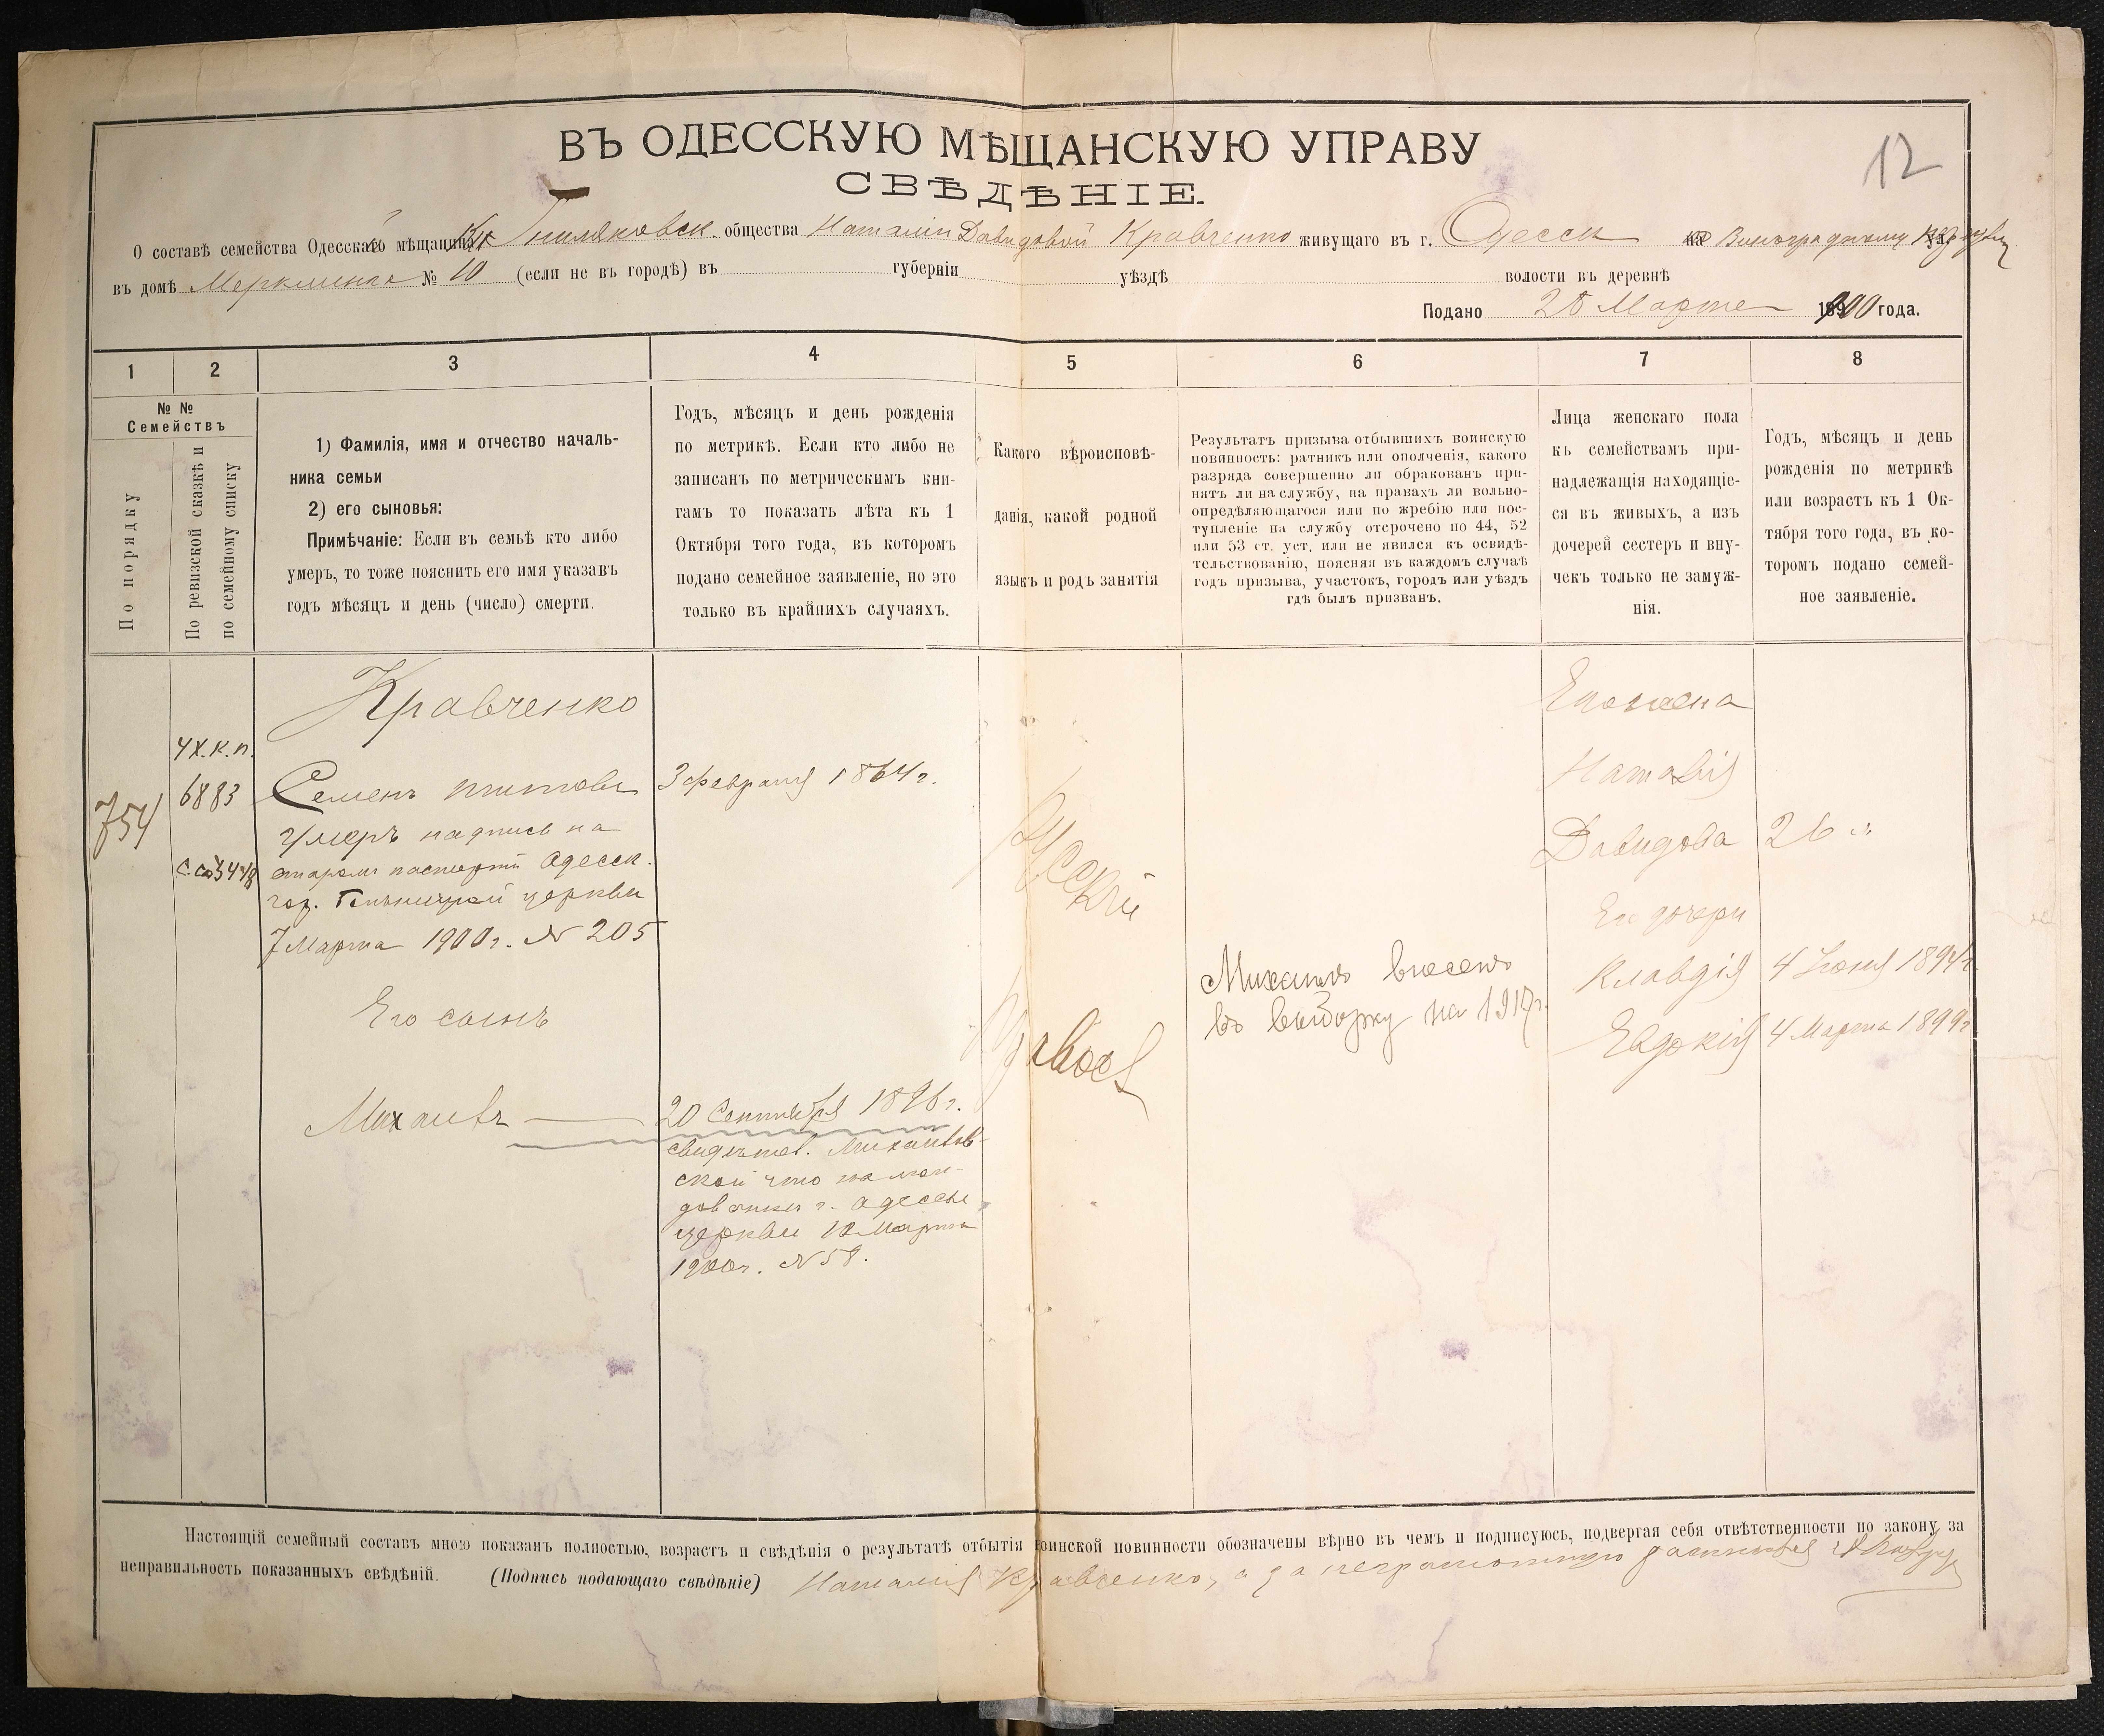 ВЪ ОДЕССКУЮ МѢЩАНСКУЮ УПРАВУ
12
СВѢДѢНІЕ.
О составѣ семейства Одесской мѣщанки Гниляковск. общества Наталіи Давидовой Кравченко живущаго въ г. Одессѣ по Виноградному
въ домѣ № 10 (если не въ городѣ) въ губерніи уѣздѣ волости въ деревнѣ
Подано 28 Марта 1900 года.
1 2 3 4 5 6 7 8
№ №
Семействъ
По порядку
По ревизской сказкѣ и
по семейному списку
1) Фамилія, имя и отчество началь-
ника семьи
2) его сыновья:
Примѣчаніе: Если въ семьѣ кто либо
умеръ, то тоже пояснить его имя указавъ
годъ мѣсяцъ и день (число) смерти.
Годъ, мѣсяцъ и день рожденія
по метрикѣ. Если кто либо не
записанъ по метрическимъ кни-
гамъ то показать лѣта къ 1
Октября того года, въ которомъ
подано семейное заявленіе, но это
только въ крайнихъ случаяхъ.
Какого вѣроисповѣ-
данія, какой родной
языкъ и родъ занятія
Результатъ призыва отбывшихъ воинскую
повинность: ратникъ или ополченія, какого
разряда совершенно ли обракованъ при-
нятъ ли на службу, на правахъ ли вольно-
опредѣляющагося или по жребію или пос-
тупленіе на службу отсрочено по 44, 52
или 53 ст. уст. или не явился къ освидѣ-
тельствованію, поясняя въ каждомъ случаѣ
годъ призыва, участокъ, городъ или уѣздъ
гдѣ былъ призванъ.
Лица женскаго пола
къ семействамъ при-
надлежащія находящіе-
ся въ живыхъ, а изъ
дочерей сестеръ и вну-
чекъ только не замуж-
нія.
Годъ, мѣсяцъ и день
рожденія по метрикѣ
или возрастъ къ 1 Ок-
тября того года, въ ко-
торомъ подано семей-
ное заявленіе.
754
6883
Кравченко
Семенъ Титовъ
умеръ надпись на
старомъ паспортѣ Одесск.
гор. церкви
7 Марта 1900 г. № 205
Его сынъ
Михаилъ
3 февраля 1864 г.
20 Сентября 1896 г.
свидѣтел. Михайлов-
ской что на мол-
даванкѣ г. Одессы
церкви Марта
1900 г. № 58.
Русскій
Правосл
Михаилъ внесенъ
въ выборку на 1917 г.
Его жена
Наталія
Давидова
26 л.
Его дочери
Клавдія
4 Іюня 1894 г.
Евдокія
4 Марта 1899 г.
Настоящій семейный составъ мною показанъ полностью, возрастъ и свѣдѣнія о результатѣ отбытія воинской повинности обозначены вѣрно въ чемъ и подписуюсь, подвергая себя отвѣтственности по закону за
неправильность показанныхъ свѣдѣній. (Подпись подающаго свѣдѣніе) Наталія Кравченко, а за неграмотную росписался